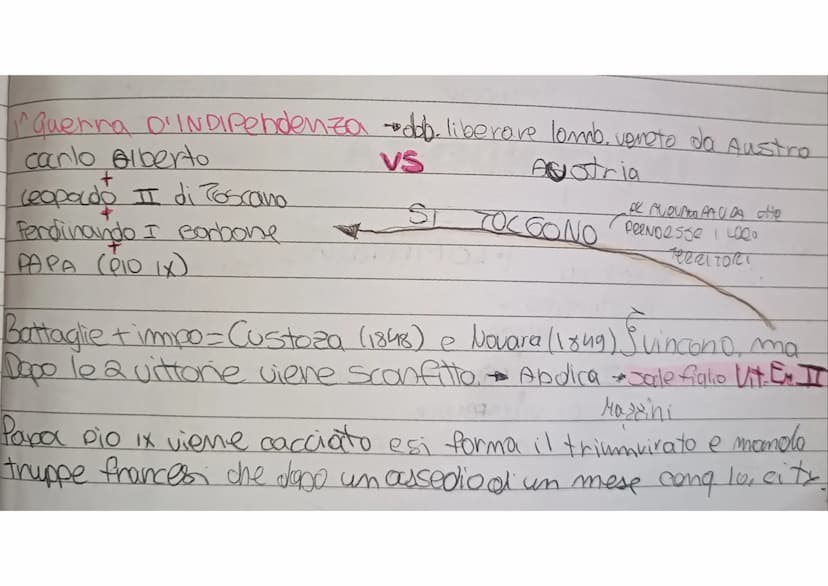 1° Guerra D'INDIPENDENZA → dob. liberare lomb. veneto da Austro
Carlo Alberto VS AUstria
+
Leopardo II di Toscana
+
Ferdinando I Borbone
+
PAPA (PIO IX)
SI TOLGONO
PRENDESSE I LORO
TERRITORI
Battaglie + impo = Custoza (1848) e Novara (1849) vincono, ma
Dopo le 2 vittorie viene sconfitto. → Abdica → sale figlio Vit. Em. II
Mazzini
Papa PIO IX viene cacciato e si forma il triumvirato e manda
truppe francesi che dopo un assedio di un mese conq la city.